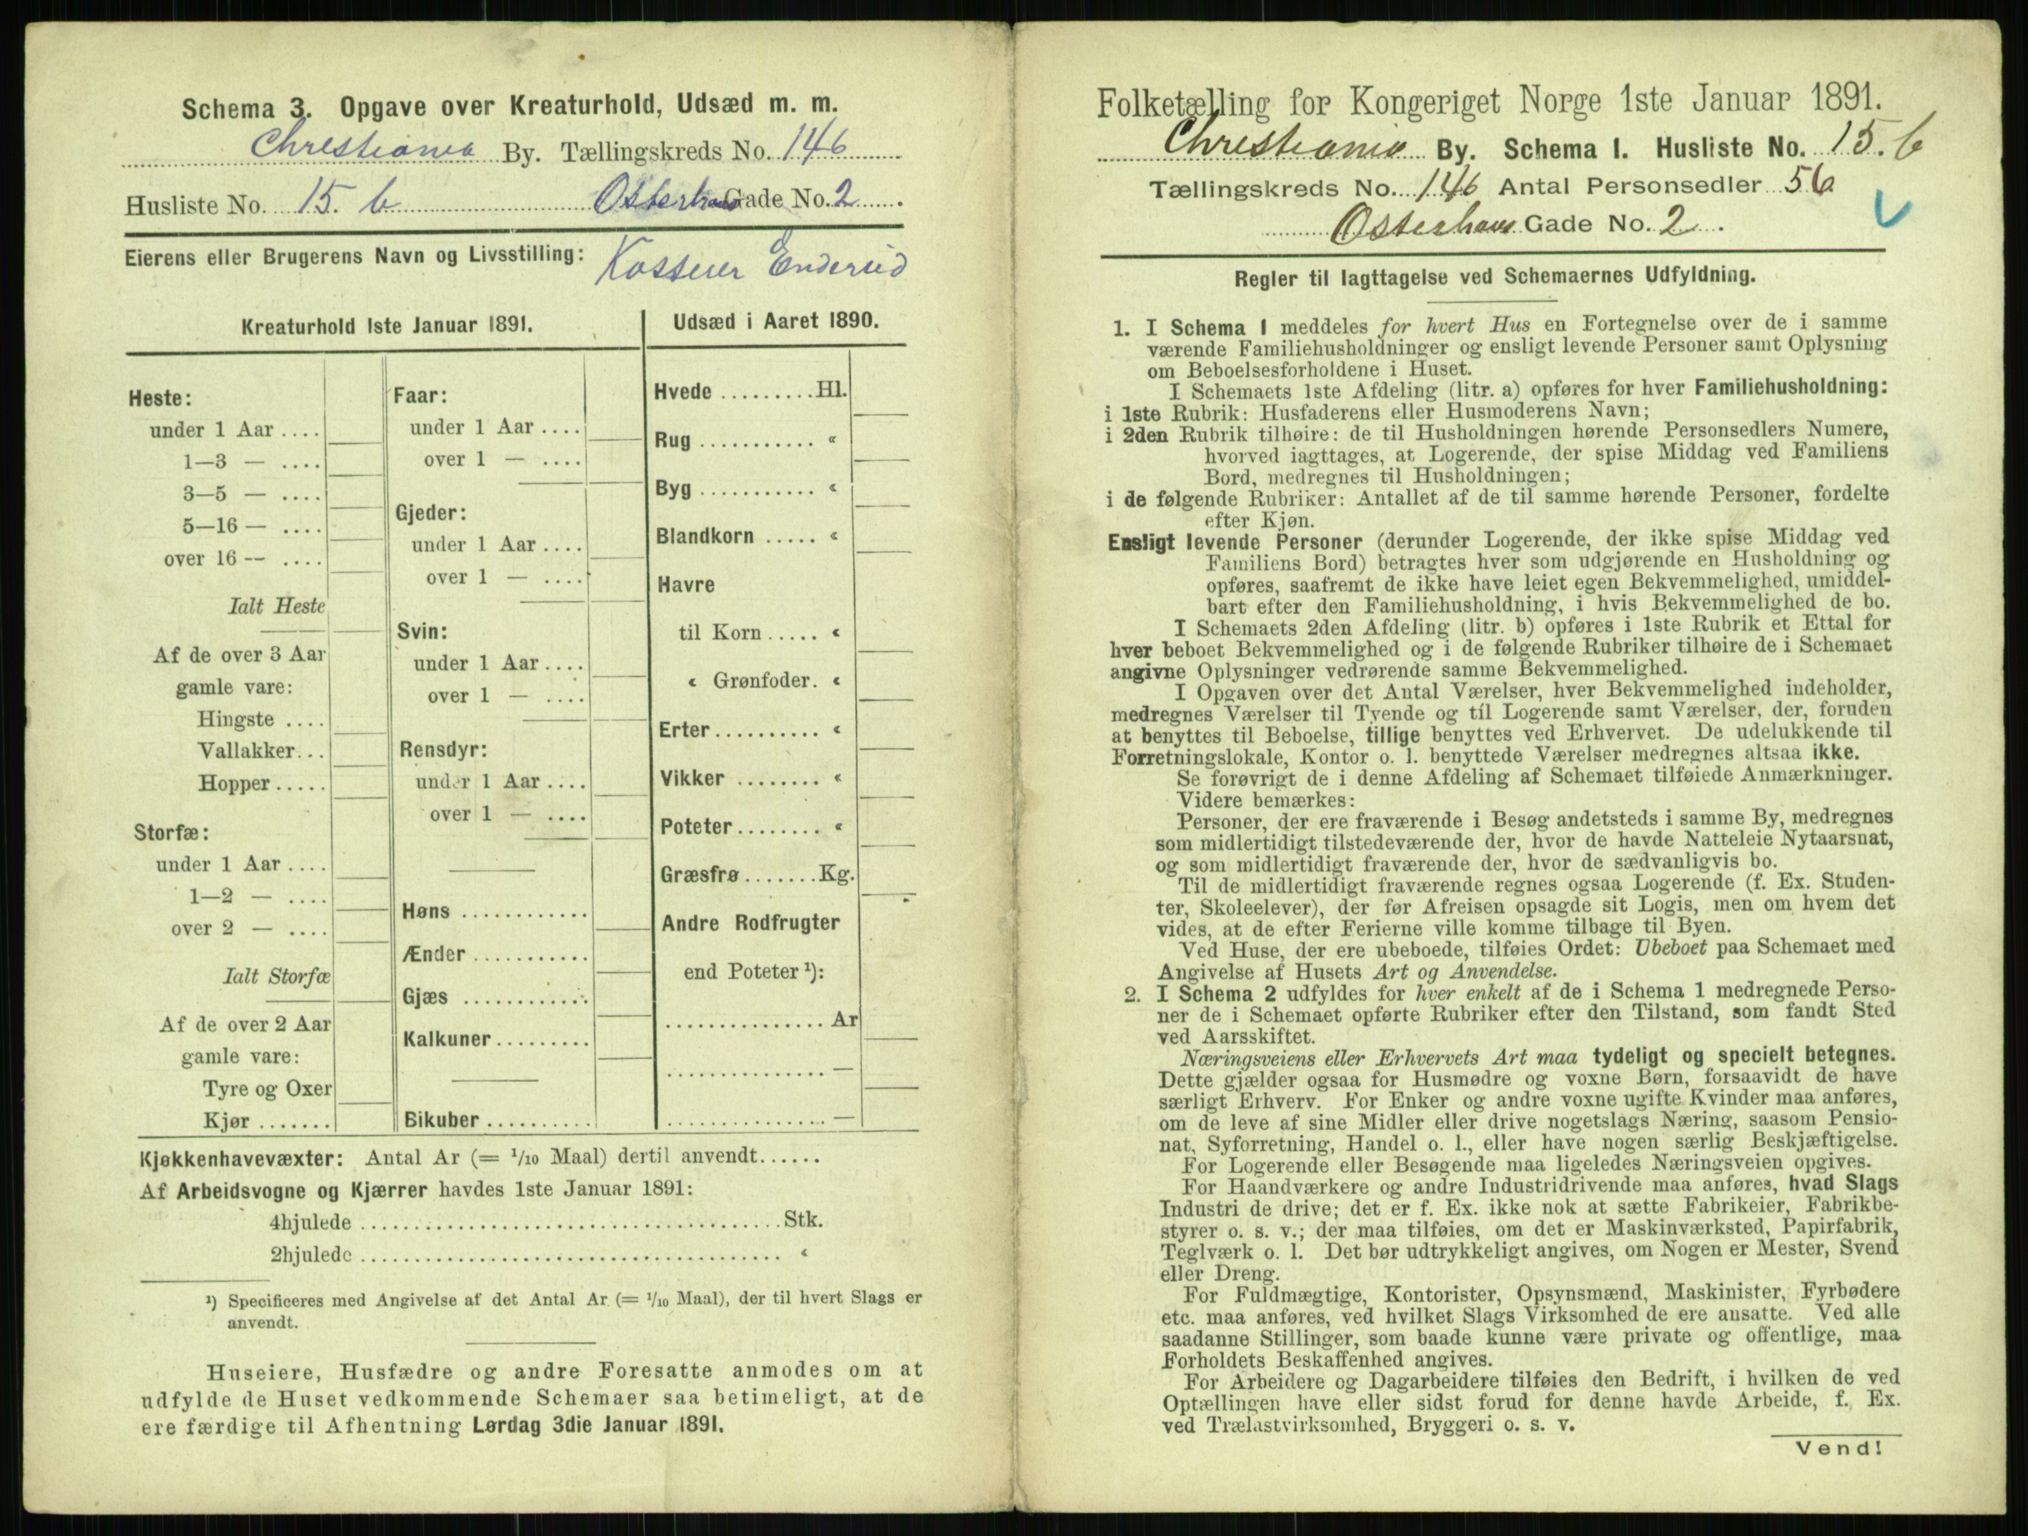 Schema 3. Opgave over Kreaturhold, Udsæd m. m.
Christiania By. Tællingskreds No. 146
Husliste No. 15. b Osterhaus Gade No. 2
Eierens eller Brugerens Navn og Livsstilling: Kasserer Enderud
Kreaturhold 1ste Januar 1891.
Heste:
under 1 Aar ....
1—3 — ....
3—5 — ....
5—16 — ....
over 16 — ....
Ialt Heste
Af de over 3 Aar
gamle vare:
Hingste ....
Vallakker...
Hopper .....
Storfæ:
under 1 Aar ....
1—2 — ....
over 2 — ....
Ialt Storfæ
Af de over 2 Aar
gamle vare:
Tyre og Oxer
Kjør .......
Faar:
under 1 Aar ....
over 1 — ....
Gjeder:
under 1 Aar ....
over 1 — ....
Svin:
under 1 Aar ....
over 1 — ....
Rensdyr:
under 1 Aar ....
over 1 — ....
Høns ............
Ænder ...........
Gjæs ............
Kalkuner.........
Bikuber ..........
Udsæd i Aaret 1890.
Hvede .........Hl.
Rug ........... «
Byg ........... «
Blandkorn ..... «
Havre
til Korn ..... «
« Grønfoder. «
Erter.......... «
Vikker ........ «
Poteter........ «
Græsfrø .......Kg.
Andre Rodfrugter
end Poteter ¹):
............... Ar
............... —
............... —
Kjøkkenhavevæxter: Antal Ar (= 1/10 Maal) dertil anvendt......
Af Arbeidsvogne og Kjærrer havdes 1ste Januar 1891:
4hjulede ....................................... Stk.
2hjulede ....................................... «
¹) Specificeres med Angivelse af det Antal Ar (= 1/10 Maal), der til hvert Slags er
anvendt.
Huseiere, Husfædre og andre Foresatte anmodes om at
udfylde de Huset vedkommende Schemaer saa betimeligt, at de
ere færdige til Afhentning Lørdag 3die Januar 1891.
Folketælling for Kongeriget Norge 1ste Januar 1891.
Christiania By. Schema I. Husliste No. 15. b
Tællingskreds No. 146 Antal Personsedler 56
Osterhaus Gade No. 2.
Regler til Iagttagelse ved Schemaernes Udfyldning.
1. I Schema 1 meddeles for hvert Hus en Fortegnelse over de i samme
værende Familiehusholdninger og ensligt levende Personer samt Oplysning
om Beboelsesforholdene i Huset.
I Schemaets 1ste Afdeling (litr. a) opføres for hver Familiehusholdning:
i 1ste Rubrik: Husfaderens eller Husmoderens Navn;
i 2den Rubrik tilhøire: de til Husholdningen hørende Personsedlers Numere,
hvorved iagttages, at Logerende, der spise Middag ved Familiens
Bord, medregnes til Husholdningen;
i de følgende Rubriker: Antallet af de til samme hørende Personer, fordelte
efter Kjøn.
Ensligt levende Personer (derunder Logerende, der ikke spise Middag ved
Familiens Bord) betragtes hver som udgjørende en Husholdning og
opføres, saafremt de ikke have leiet egen Bekvemmelighed, umiddel-
bart efter den Familiehusholdning, i hvis Bekvemmelighed de bo.
I Schemaets 2den Afdeling (litr. b) opføres i 1ste Rubrik et Ettal for
hver beboet Bekvemmelighed og i de følgende Rubriker tilhøire de i Schemaet
angivne Oplysninger vedrørende samme Bekvemmelighed.
I Opgaven over det Antal Værelser, hver Bekvemmelighed indeholder,
medregnes Værelser til Tyende og til Logerende samt Værelser, der, foruden
at benyttes til Beboelse, tillige benyttes ved Erhvervet. De udelukkende til
Forretningslokale, Kontor o. l. benyttede Værelser medregnes altsaa ikke.
Se forøvrigt de i denne Afdeling af Schemaet tilføiede Anmærkninger.
Videre bemærkes:
Personer, der ere fraværende i Besøg andetsteds i samme By, medregnes
som midlertidigt tilstedeværende der, hvor de havde Natteleie Nytaarsnat,
og som midlertidigt fraværende der, hvor de sædvanligvis bo.
Til de midlertidigt fraværende regnes ogsaa Logerende (f. Ex. Studen-
ter, Skoleelever), der før Afreisen opsagde sit Logis, men om hvem det
vides, at de efter Ferierne ville komme tilbage til Byen.
Ved Huse, der ere ubeboede, tilføies Ordet: Ubeboet paa Schemaet med
Angivelse af Husets Art og Anvendelse.
2. I Schema 2 udfyldes for hver enkelt af de i Schema 1 medregnede Perso-
ner de i Schemaet opførte Rubriker efter den Tilstand, som fandt Sted
ved Aarsskiftet.
Næringsveiens eller Erhvervets Art maa tydeligt og specielt betegnes.
Dette gjælder ogsaa for Husmødre og voxne Børn, forsaavidt de have
særligt Erhverv. For Enker og andre voxne ugifte Kvinder maa anføres,
om de leve af sine Midler eller drive nogetslags Næring, saasom Pensio-
nat, Syforretning, Handel o. l., eller have nogen særlig Beskjæftigelse.
For Logerende eller Besøgende maa ligeledes Næringsveien opgives.
For Haandværkere og andre Industridrivende maa anføres, hvad Slags
Industri de drive; det er f. Ex. ikke nok at sætte Fabrikeier, Fabrikbe-
styrer o. s. v.; der maa tilføies, om det er Maskinværksted, Papirfabrik,
Teglværk o. l. Det bør udtrykkeligt angives, om Nogen er Mester, Svend
eller Dreng.
For Fuldmægtige, Kontorister, Opsynsmænd, Maskinister, Fyrbødere
etc. maa anføres, ved hvilket Slags Virksomhed de ere ansatte. Ved alle
saadanne Stillinger, som baade kunne være private og offentlige, maa
Forholdets Beskaffenhed angives.
For Arbeidere og Dagarbeidere tilføies den Bedrift, i hvilken de ved
Optællingen have eller sidst forud for denne havde Arbeide, f. Ex.
ved Trælastvirksomhed, Bryggeri o. s. v.
Vend!